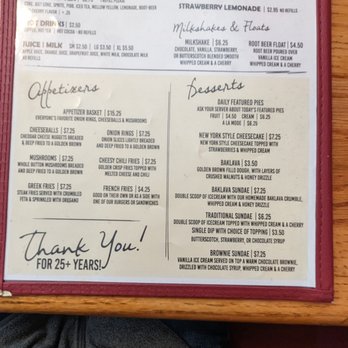 STRAWBERRY LEMONADE | $2.95 NO REFILLS
HOT DRINKS | $2.50
JUICE | MILK SM $2.50 | LG $3.50 | XL $5.50
Milkshakes & Floats
MILKSHAKE | $6.25
CHOCOLATE, VANILLA, STRAWBERRY,
OR BUTTERSCOTCH SERVED SMOOTH
WITH WHIPPED CREAM & A CHERRY
ROOT BEER FLOAT | $4.50
ROOT BEER POURED OVER
VANILLA ICE CREAM
WHIPPED CREAM & A CHERRY
Appetizers
APPETIZER BASKET | $15.25
EVERYONE'S FAVORITE ONION RINGS, CHEESEBALLS & MUSHROOMS
CHEESEBALLS | $7.25
CHEDDAR CHEESE NUGGETS BREADED
& DEEP FRIED TO A GOLDEN BROWN
ONION RINGS | $7.25
ONION SLICES LIGHTLY BREADED
& DEEP FRIED TO A GOLDEN BROWN
MUSHROOMS | $7.25
WHOLE BUTTON MUSHROOMS BREADED
AND DEEP FRIED TO A GOLDEN BROWN
CHEESY CHILI FRIES | $7.25
GOLDEN CRISP FRIES TOPPED WITH
MELTED CHEESE AND CHILI
GREEK FRIES | $7.25
STEAK FRIES SERVED WITH CRUMBLED
FETA & SPRINKLED WITH OREGANO
FRENCH FRIES | $4.25
GOOD ON THEIR OWN OR AS A SIDE WITH
ONE OF OUR BURGERS OR SANDWICHES
Thank You!
FOR 25+ YEARS!
Desserts
DAILY FEATURED PIES
ASK YOUR SERVER ABOUT TODAY'S FEATURED PIES
FRUIT | $4.50 CREAM | $6.25
A LA MODE | $6.25
NEW YORK STYLE CHEESECAKE | $7.25
NEW YORK STYLE TOPPED WITH
STRAWBERRIES & WHIPPED CREAM
BAKLAVA | $3.50
GOLDEN BROWN FILLO DOUGH, WITH LAYERS OF
CRUSHED WALNUTS & HONEY DRIZZLE
BAKLAVA SUNDAE | $7.25
DOUBLE SCOOP OF ICECREAM WITH OUR HOMEMADE BAKLAVA CRUMBLE,
WHIPPED CREAM & HONEY DRIZZLE
TRADITIONAL SUNDAE | $6.25
DOUBLE SCOOP OF ICECREAM TOPPED WITH WHIPPED CREAM & A CHERRY
SINGLE DIP WITH CHOICE OF TOPPING | $3.50
BUTTERSCOTCH, STRAWBERRY, OR CHOCOLATE SYRUP
BROWNIE SUNDAE | $7.25
VANILLA ICE CREAM SERVED ON TOP A WARM CHOCOLATE BROWNIE,
DRIZZLED WITH CHOCOLATE SYRUP, WHIPPED CREAM & A CHERRY